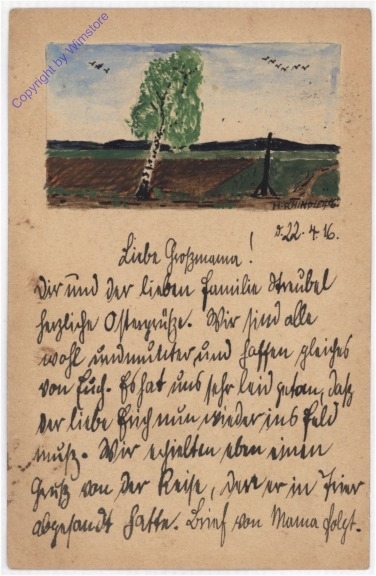 Copyright by Wimstore
d. 22. 4. 16.
Liebe Großmama!
Dir und der lieben Familie Streubel
herzliche Ostergrüße. Wir sind alle
wohl und munter, und hoffen gleiches
von Euch. Es hat uns sehr leid getan, daß
der liebe Erich nun wieder ins Feld
muß. Wir erhielten eben einen
Gruß von der Reise, den er in Trier
abgesandt hatte. Brief von Mama folgt.